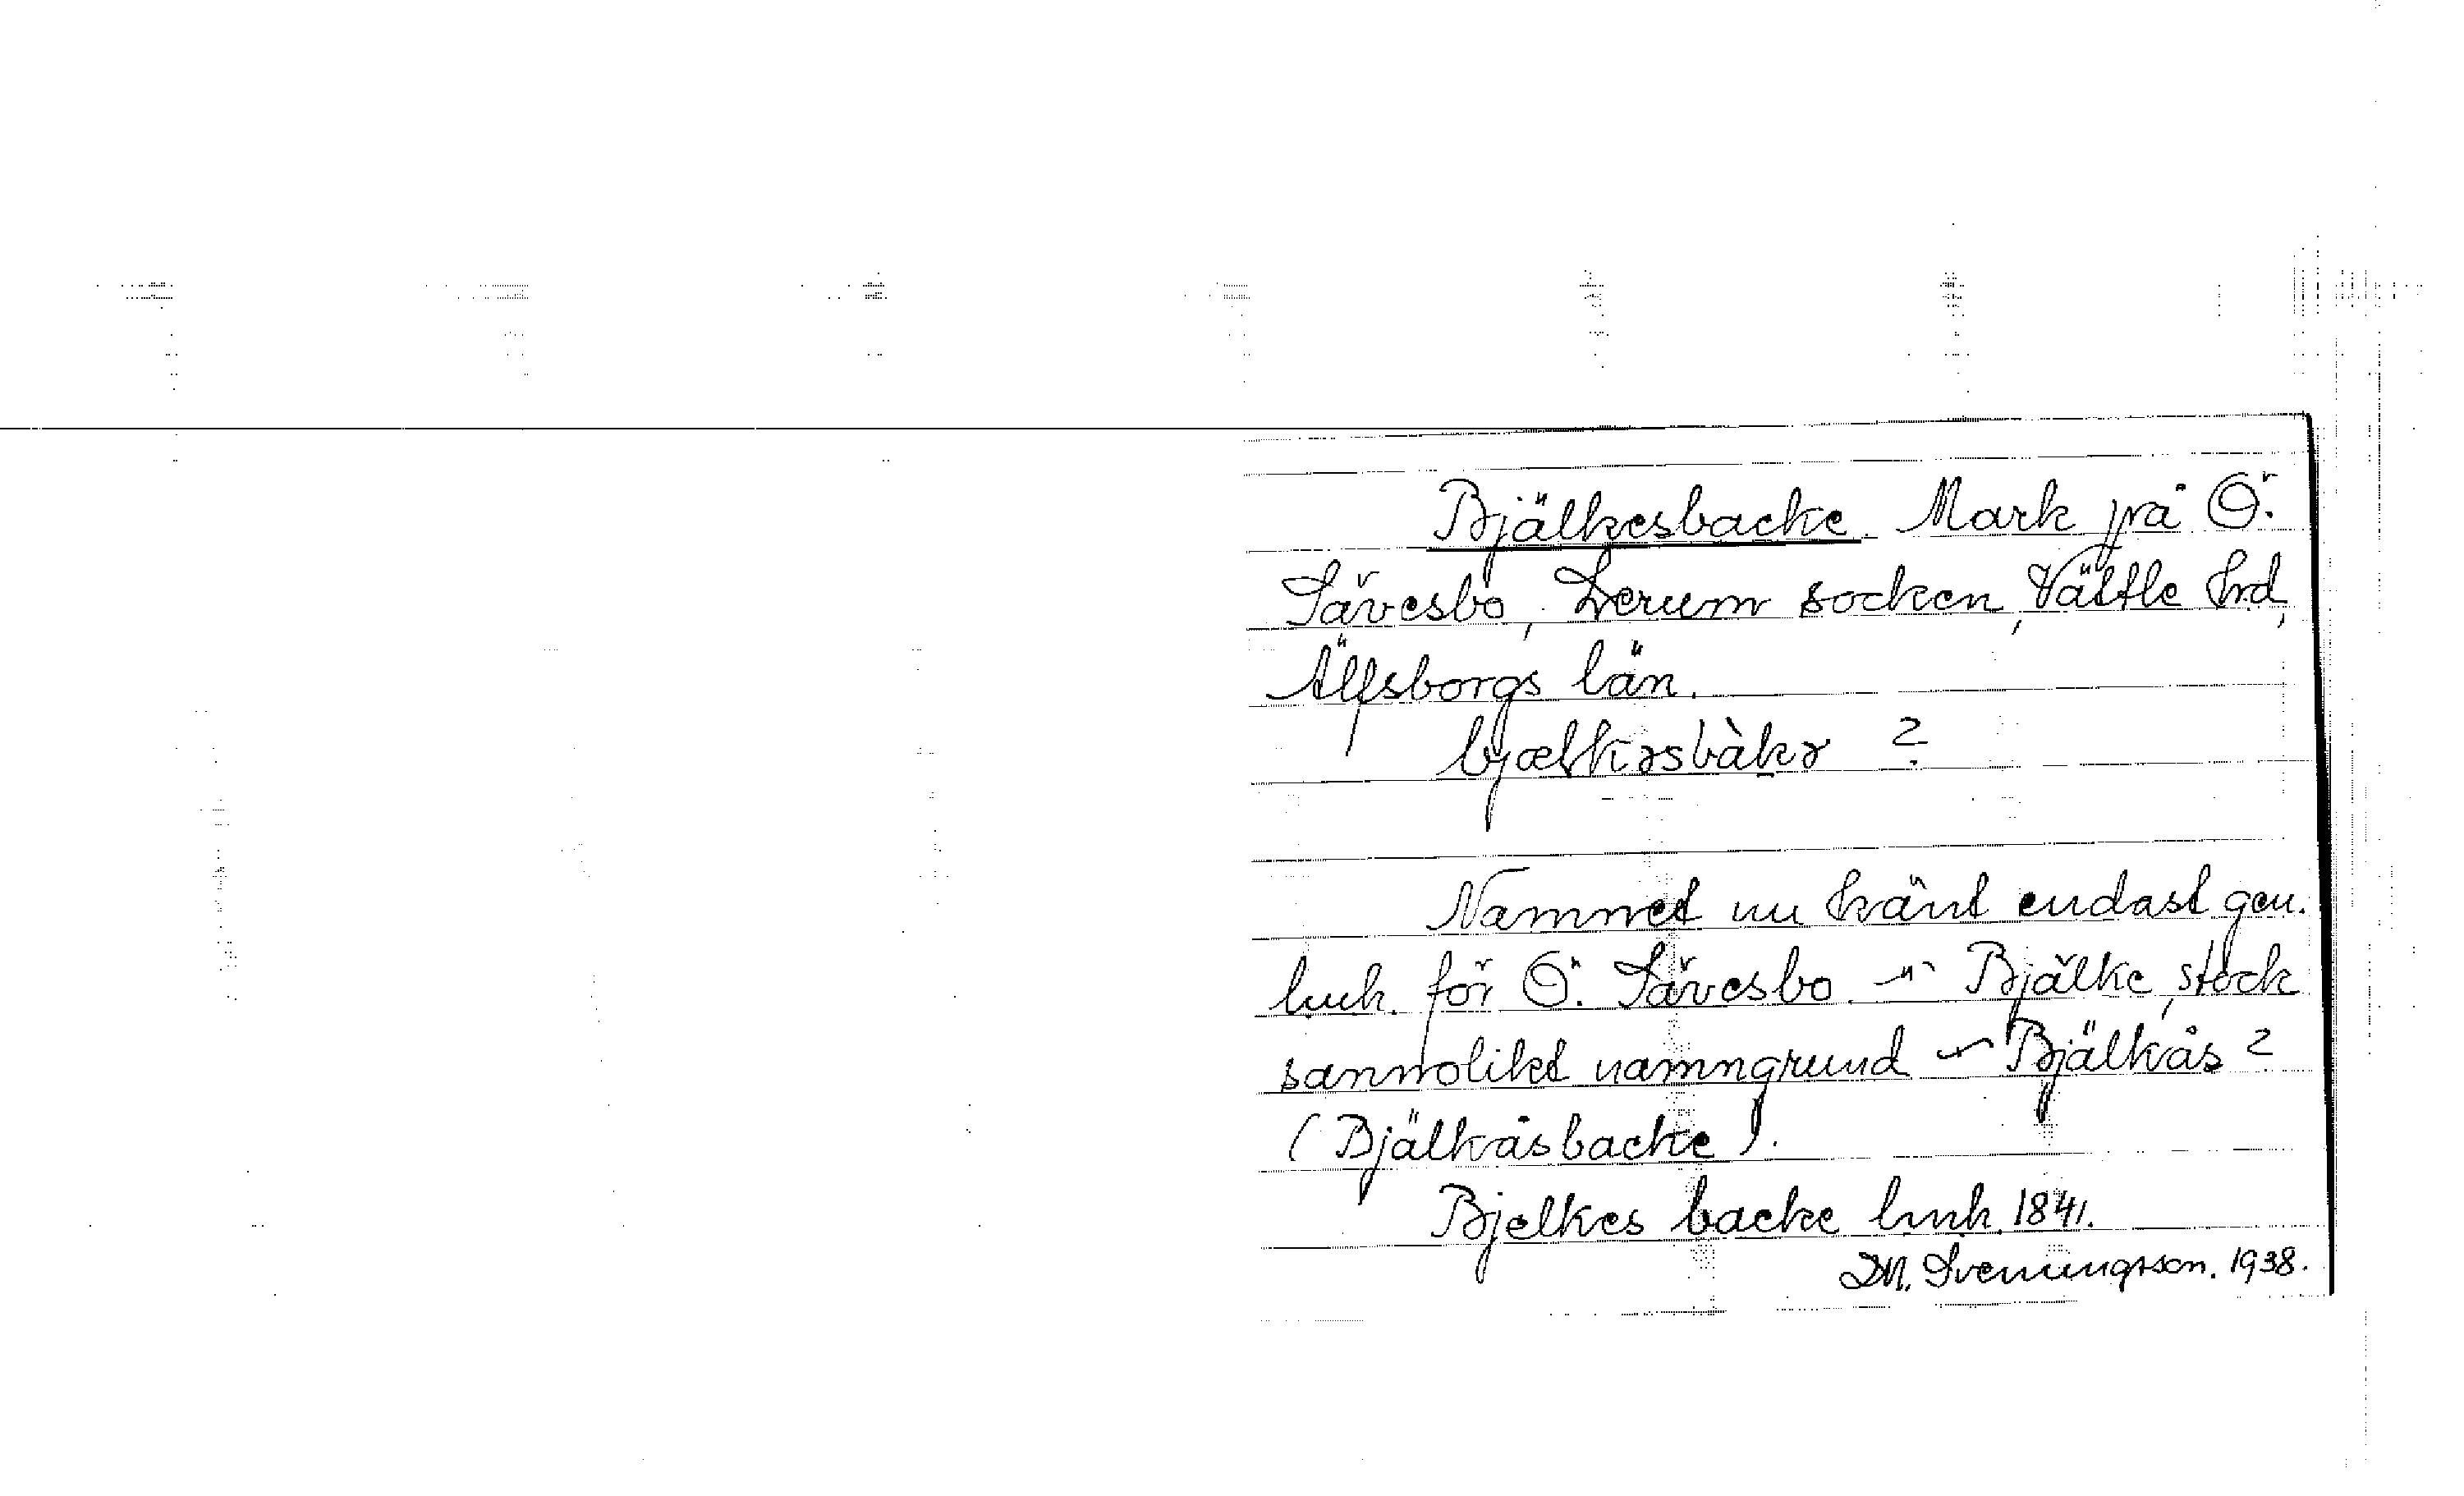 Bjälkesbacke. Mark på Ö.
Sävesbo, Lerum socken, Vättle hrd,
Älfsborgs län.
bjælkəsbàkə ?
Namnet nu känt endast gen.
lmk. för Ö. Sävesbo. – Bjälke, stock
sannolikt namngrund – Bjälkås?
(Bjälkåsbacke).
Bjelkes backe lmk. 1841.
Svenungsson. 1938.